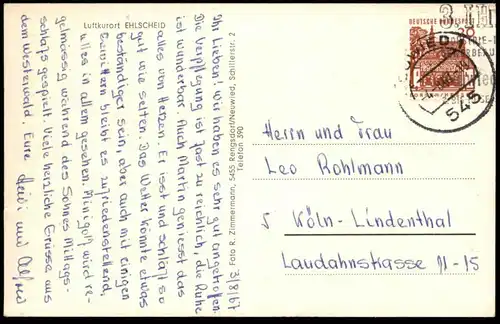 Luftkurort EHLSCHEID
3/8/67
Ihr Lieben! wir haben es sehr gut angetroffen.
Die Verpflegung ist fast zu reichlich, die Ruhe
ist wunderbar. Auch Martin geniesst das
alles von Herzen. Er isst und schläft so
gut wie selten. Das Wetter könnte etwas
beständiger sein, aber auch mit einigen
Gewittern bleibt es zufriedenstellend,
alles in allem gesehen. Minigolf wird re-
gelmässig während des Sohnes Mittags-
schlafs gespielt. Viele herzliche Grüsse aus
dem Westerwald. Eure Heidi und Alfred
Foto R. Zimmermann, 5455 Rengsdorf/Neuwied, Schillerstr. 2
Telefon 390
DEUTSCHE BUNDESPOST
545
Herrn und Frau
Leo Rohlmann
5 Köln-Lindenthal
Laudahnstrasse 11-15